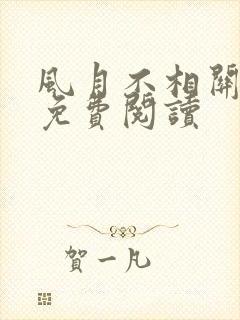 風月不相關
免費閱讀
賀一凡